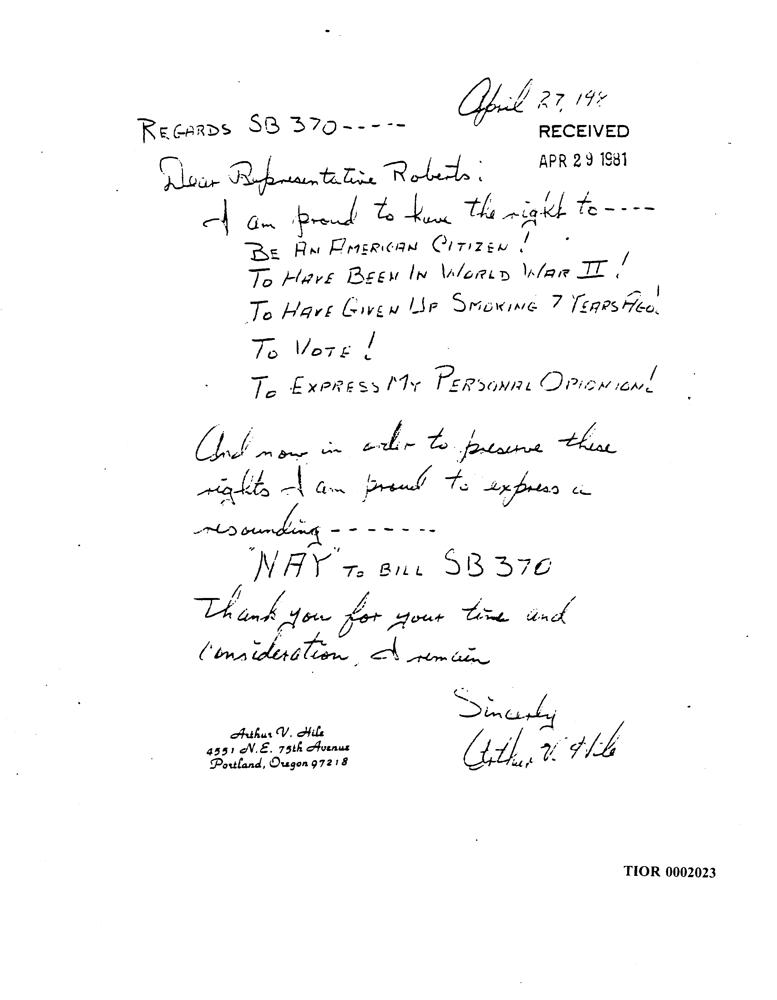 April 27, 198
REGARDS SB 370-----
RECEIVED
APR 29 1981
Dear Representative Roberts:
I am proud to have the right to----
BE AN AMERICAN CITIZEN!
TO HAVE BEEN IN WORLD WAR II!
TO HAVE GIVEN UP SMOKING 7 YEARS AGO!
TO VOTE!
TO EXPRESS MY PERSONAL OPIGNION!
And now in order to preserve these
rights I am proud to express a
resounding -------
"NAY" TO BILL SB 370
Thank you for your time and
consideration, I remain
Sincerly
Arthur V. Hile
Arthur V. Hile
4551 N.E. 75th Avenue
Portland, Oregon 97218
TIOR 0002023